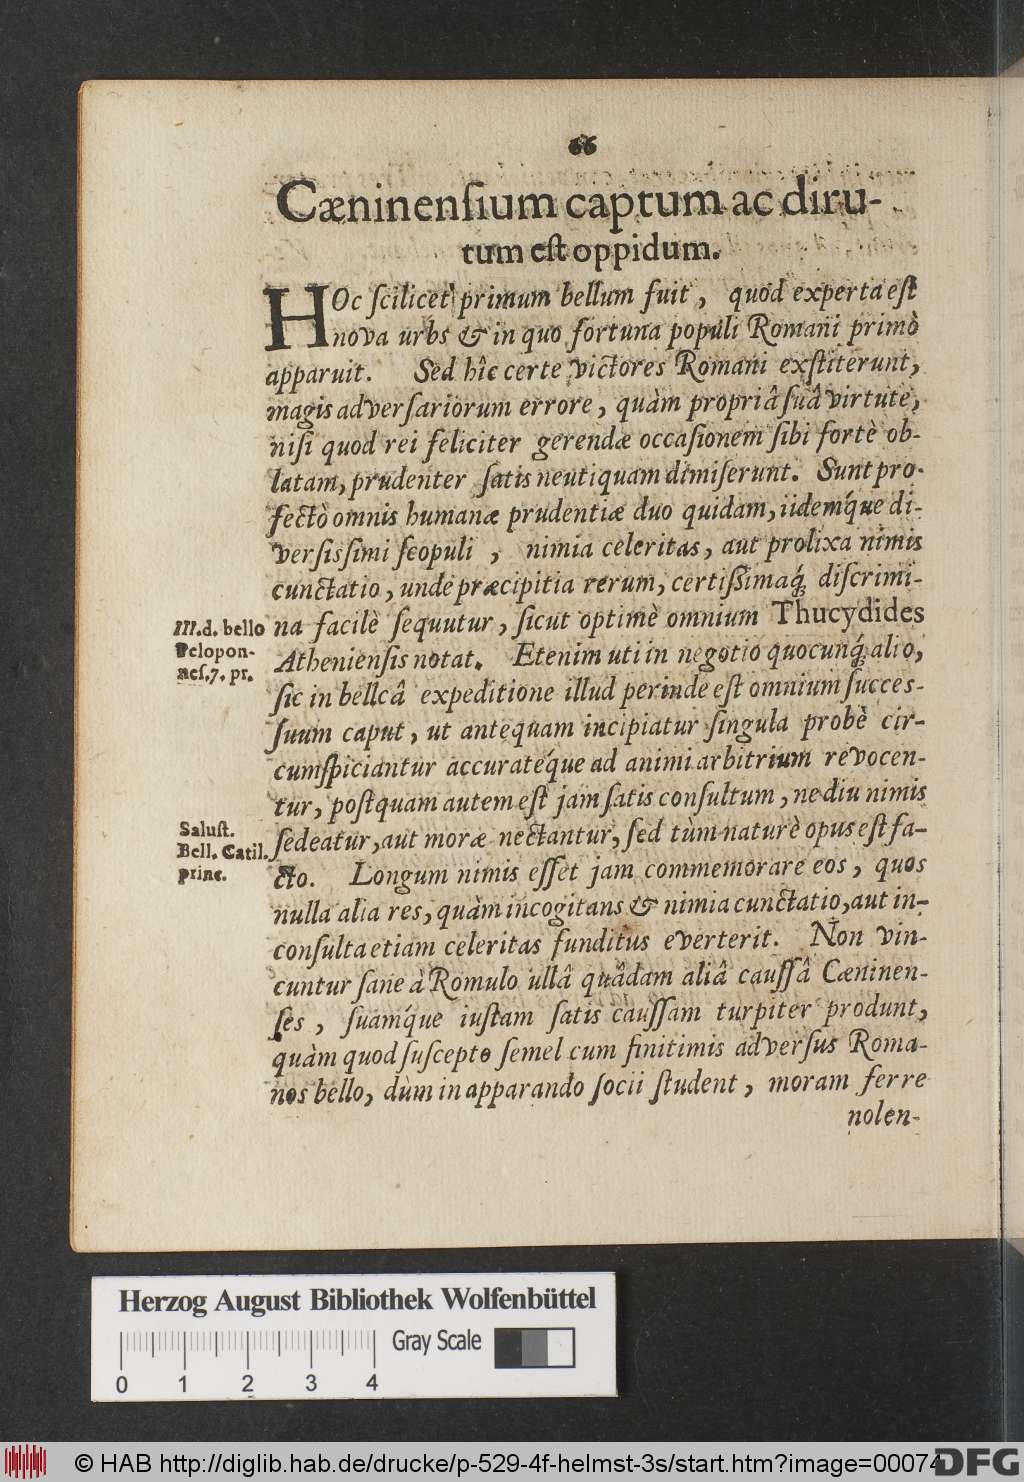 66
Cæninenſium captum ac diru-
tum eſt oppidum.
HOc ſcilicet primum bellum fuit, quod experta eſt
nova urbs & in quo fortuna populi Romani primò
apparuit. Sed hîc certe victores Romani exſtiterunt,
magis adverſariorum errore, quàm propriâ ſuâ virtute,
niſi quod rei feliciter gerendæ occaſionem ſibi fortè ob-
latam, prudenter ſatis neutiquam dimiſerunt. Sunt pro-
fectò omnis humanæ prudentiæ duo quidam, iidemq́ue di-
verſisſimi ſcopuli, nimia celeritas, aut prolixa nimis
cunctatio, unde præcipitia rerum, certißimaq́; diſcrimi-
III. d. bello
Pelopon-
neſ. 7. pr.
na facilè ſequutur, ſicut optimè omnium Thucydides
Athenienſis notat. Etenim uti in negotio quocunq́; alio,
ſic in bellcâ expeditione illud perinde eſt omnium ſucces-
ſuum caput, ut antequam incipiatur ſingula probè cir-
cumſpiciantur accurateq́ue ad animi arbitrium revocen-
tur, poſtquam autem eſt jam ſatis conſultum, ne diu nimis
Saluſt.
Bell. Catil.
princ.
ſedeatur, aut moræ nectantur, ſed tùm naturè opus eſt fa-
cto. Longum nimis eſſet jam commemorare eos, quos
nulla alia res, quàm incogitans & nimia cunctatio, aut in-
conſulta etiam celeritas funditus everterit. Non vin-
cuntur ſane à Romulo ullâ quâdam aliâ cauſſâ Cæninen-
ſes, ſuamq́ue iuſtam ſatis cauſſam turpiter produnt,
quàm quod ſuſcepto ſemel cum finitimis adverſus Roma-
nos bello, dum in apparando ſocii ſtudent, moram ferre
nolen-
Herzog August Bibliothek Wolfenbüttel
Gray Scale
0 1 2 3 4
© HAB http://diglib.hab.de/drucke/p-529-4f-helmst-3s/start.htm?image=00074
DFG